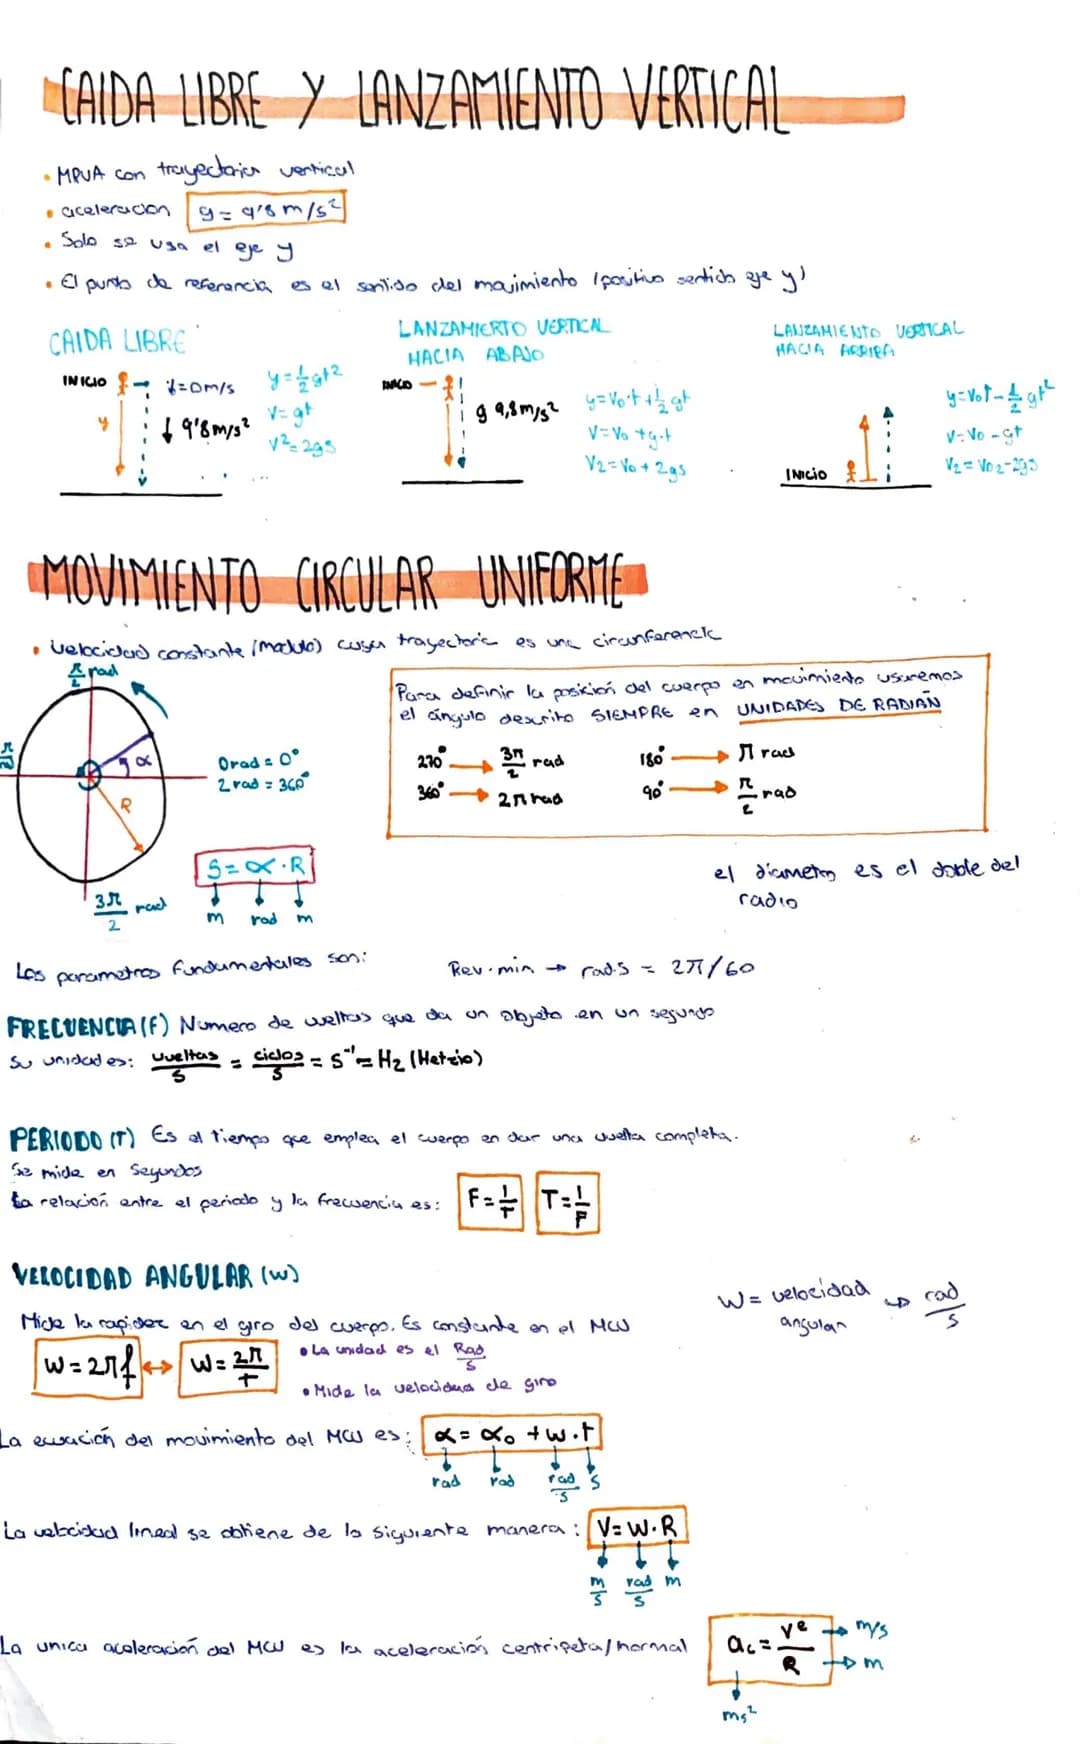 CAIDA LIBRE Y LANZAMIENTO VERTICAL
• MRUA con trayectoria vertical
• aceleracion g = 9'8 m/s²
• Solo se usa el eje y
• El punto de referencia es el sentido del movimiento (positivo sentido eje y)
CAIDA LIBRE
INICIO
V=0m/s
y
↓ 9'8m/s²
y=½gt²
V=gt
V²=2gs
LANZAMIENTO VERTICAL
HACIA ABAJO
INICIO
g 9,8m/s²
y=Vo·t+½gt
V=Vo+g·t
V2=Vo+2gs
LANZAMIENTO VERTICAL
HACIA ARRIBA
INICIO
y=Vot-½gt²
V=Vo-gt
V2=Vo2-2gs
MOVIMIENTO CIRCULAR UNIFORME
• Velocidad constante (modulo) cuya trayectoria es una circunferencia
π/2 rad
α
R
3π/2 rad
0rad=0°
2rad=360°
S=α·R
m rad m
Para definir la posición del cuerpo en movimiento usaremos
el ángulo descrito SIEMPRE en UNIDADES DE RADIAN
270° → 3π/2 rad 180° → π rad
360° → 2π rad 90° → π/2 rad
el diametro es el doble del
radio
Los parametros fundumentales son:
Rev·min → rad·s = 2π/60
FRECUENCIA (F) Numero de vueltas que da un objeto en un segundo
Su unidad es: vueltas/s = ciclos/s = s⁻¹ = Hz (Hetzio)
PERIODO (T) Es el tiempo que emplea el cuerpo en dar una vuelta completa.
Se mide en Segundos
La relación entre el periodo y la frecuencia es: F=1/T T=1/F
VELOCIDAD ANGULAR (w)
Mide la rapidez en el giro del cuerpo. Es constante en el MCU
W = velocidad angular → rad/s
W=2πf ↔ W=2π/T
• La unidad es el Rad/s
• Mide la velocidad de giro
La ecuación del movimiento del MCU es: α=αo+w·t
rad rad rad/s s
La velocidad lineal se obtiene de la siguiente manera: V=W·R
m/s rad/s m
La unica aceleración del MCU es la aceleración centripeta/normal ac=V²/R → m/s → m
ms²